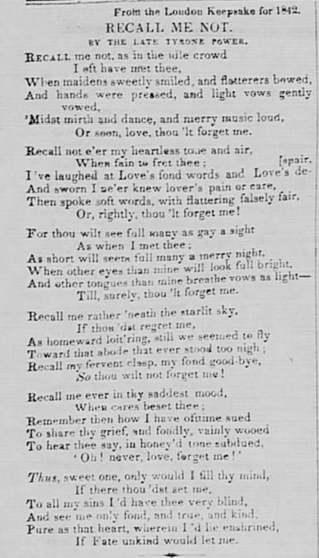 From the London Keepsake for 1842.
RECALL ME NOT.
BY THE LATE TYRONE POWER.
RECALL me not, as in the idle crowd
I oft have met thee,
When maidens sweetly smiled, and flatterers bowed,
And hands were pressed, and light vows gently
vowed,
'Midst mirth and dance, and merry music loud,
Or soon, love, thou 'lt forget me.
Recall not e'er my heartless tone and air,
When fain to fret thee; [spair,
I 've laughed at Love's fond words and Love's de-
And sworn I ne'er knew lover's pain or care,
Then spoke soft words, with flattering falsely fair,
Or, rightly, thou 'lt forget me!
For thou wilt see full many as gay a sight
As when I met thee;
As short will seem full many a merry night,
When other eyes than mine will look full bright,
And other tongues than mine breathe vows as light—
Till, surely, thou 'lt forget me.
Recall me rather 'neath the starlit sky,
If thou 'dst regret me,
As homeward loit'ring, still we seemed to fly
Toward that abode that ever stood too nigh;
Recall my fervent clasp, my fond good-bye,
So thou wilt not forget me!
Recall me ever in thy saddest mood,
When cares beset thee;
Remember then how I have oftime sued
To share thy grief, and fondly, vainly wooed
To hear thee say, in honey'd tone subdued,
'Oh! never, love, forget me!'
Thus, sweet one, only would I fill thy mind,
If there thou 'dst set me,
To all my sins I 'd have thee very blind,
And see me only fond, and true, and kind,
Pure as that heart, wherein I 'd lie enshrined,
If Fate unkind would let me.